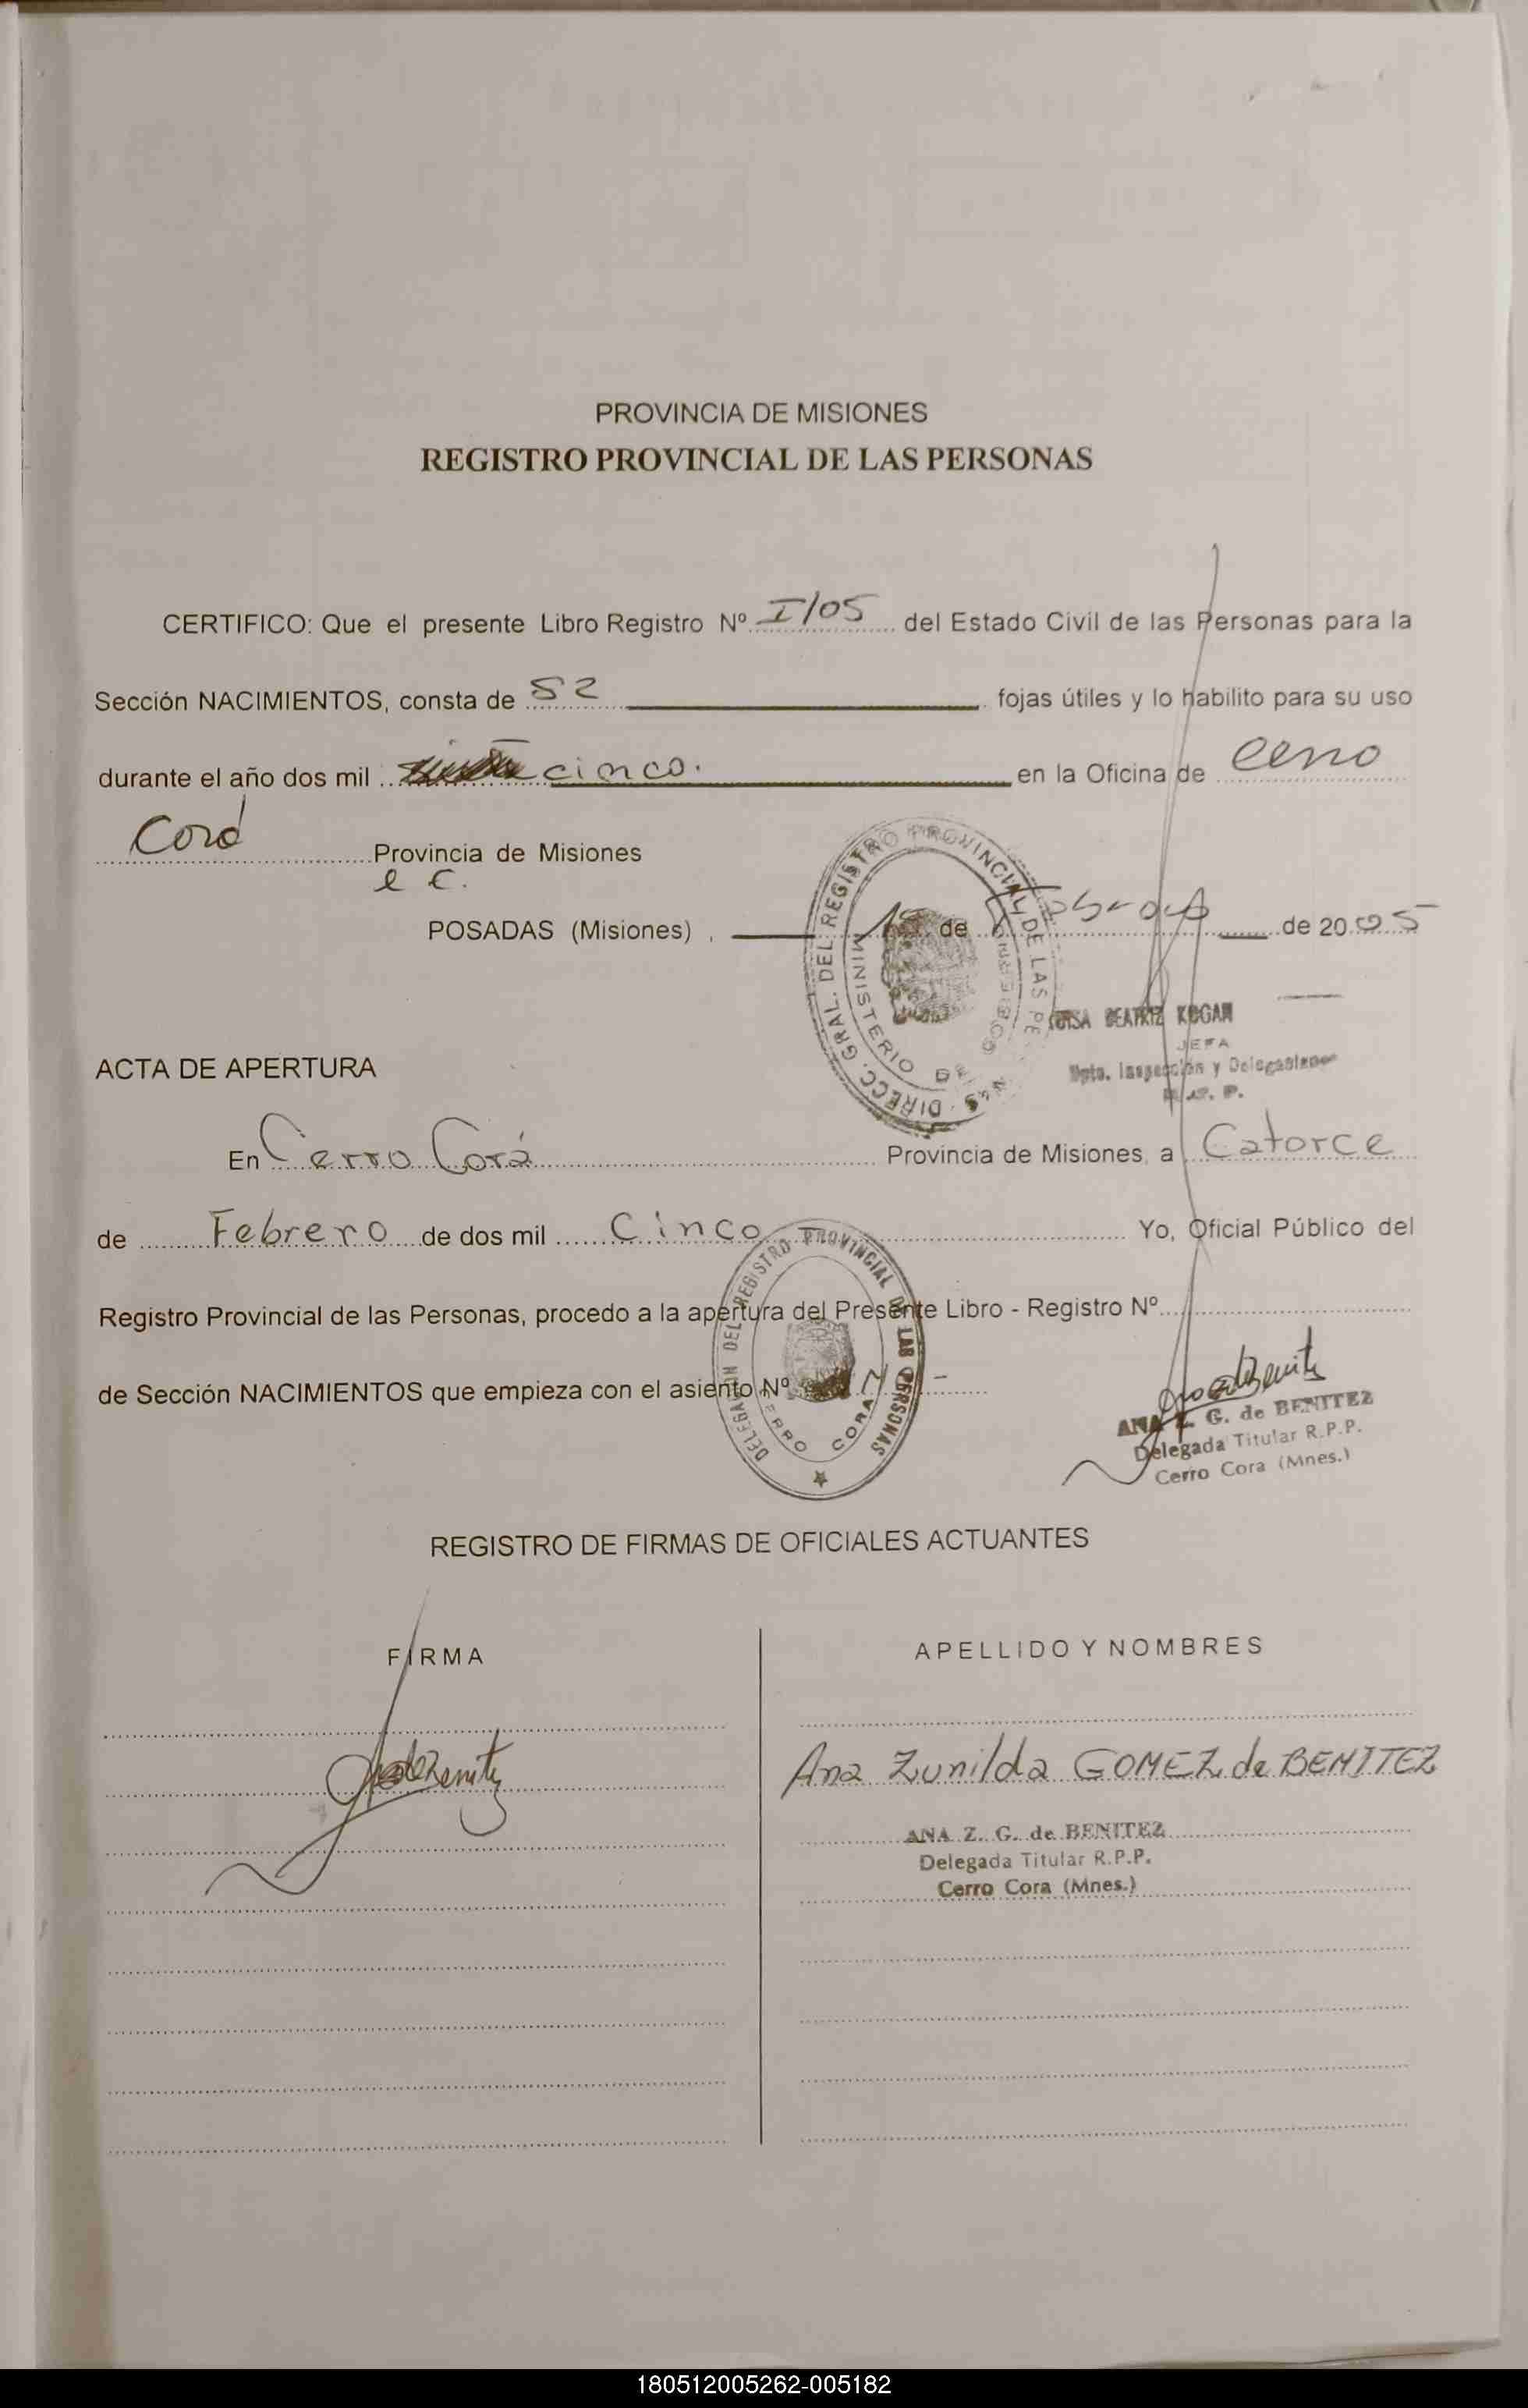 PROVINCIA DE MISIONES
REGISTRO PROVINCIAL DE LAS PERSONAS
CERTIFICO: Que el presente Libro Registro Nº I/05 del Estado Civil de las Personas para la
Sección NACIMIENTOS, consta de 52 fojas útiles y lo habilito para su uso
durante el año dos mil cinco. en la Oficina de Cerro
Corá Provincia de Misiones
POSADAS (Misiones), 1º de Febrero de 2005
DIRECC. GRAL. DEL REGISTRO PROVINCIAL DE LAS PE
MINISTERIO DE GOBIERNO
BEATRIZ KOGAN
JEFA
Dpto. Inspección y Delegaciones
R. P. P.
ACTA DE APERTURA
En Cerro Corá Provincia de Misiones, a Catorce
de Febrero de dos mil Cinco Yo, Oficial Público del
Registro Provincial de las Personas, procedo a la apertura del Presente Libro - Registro Nº
de Sección NACIMIENTOS que empieza con el asiento Nº
DELEGACION DEL REGISTRO PROVINCIAL DE LAS PERSONAS
CERRO CORA
ANA Z. G. de BENITEZ
Delegada Titular R.P.P.
Cerro Cora (Mnes.)
REGISTRO DE FIRMAS DE OFICIALES ACTUANTES
FIRMA
APELLIDO Y NOMBRES
Ana Zunilda GOMEZ de BENITEZ
ANA Z. G. de BENITEZ
Delegada Titular R.P.P.
Cerro Cora (Mnes.)
180512005262-005182